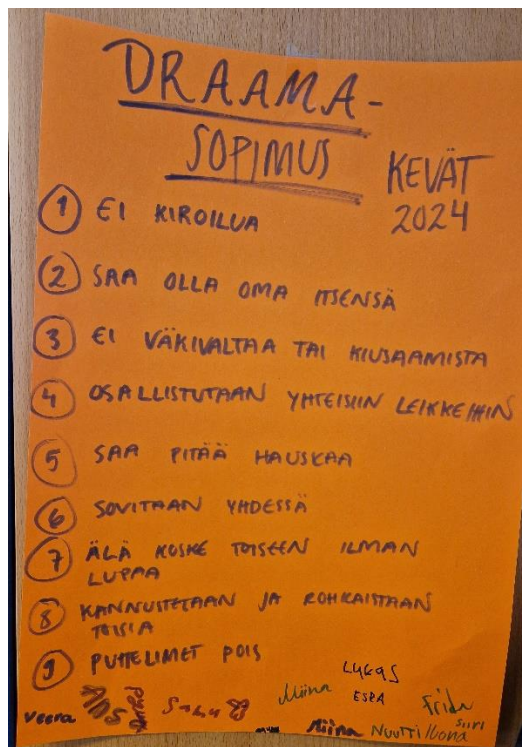 DRAAMA-
SOPIMUS
KEVÄT
2024
1 EI KIROILUA
2 SAA OLLA OMA ITSENSÄ
3 EI VÄKIVALTAA TAI KIUSAAMISTA
4 OSALLISTUTAAN YHTEISIIN LEIKKEIHIN
5 SAA PITÄÄ HAUSKAA
6 SOVITAAN YHDESSÄ
7 ÄLÄ KOSKE TOISEEN ILMAN
LUPAA
8 KANNUSTETAAN JA ROHKAISTAAN
TOISIA
9 PUHELIMET POIS
LUKAS
Miina ESRA Frida
Veera Siiri
Miina Nuutti Ilona